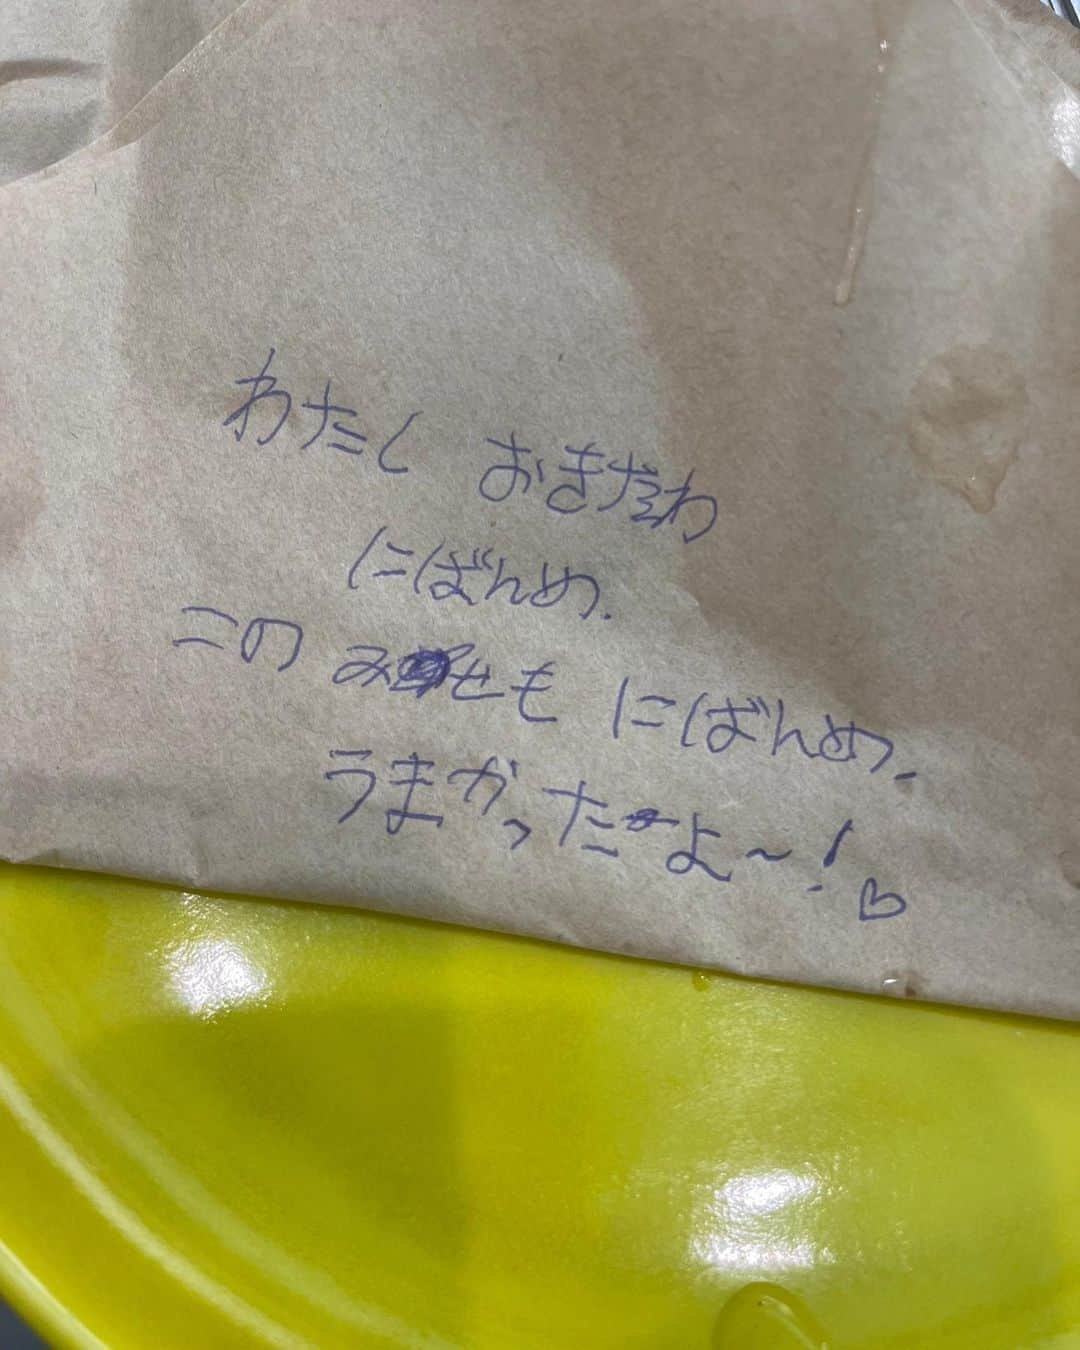 わたし おきなわ
にばんめ.
この みせも にばんめ.
うまかったよ〜!♡